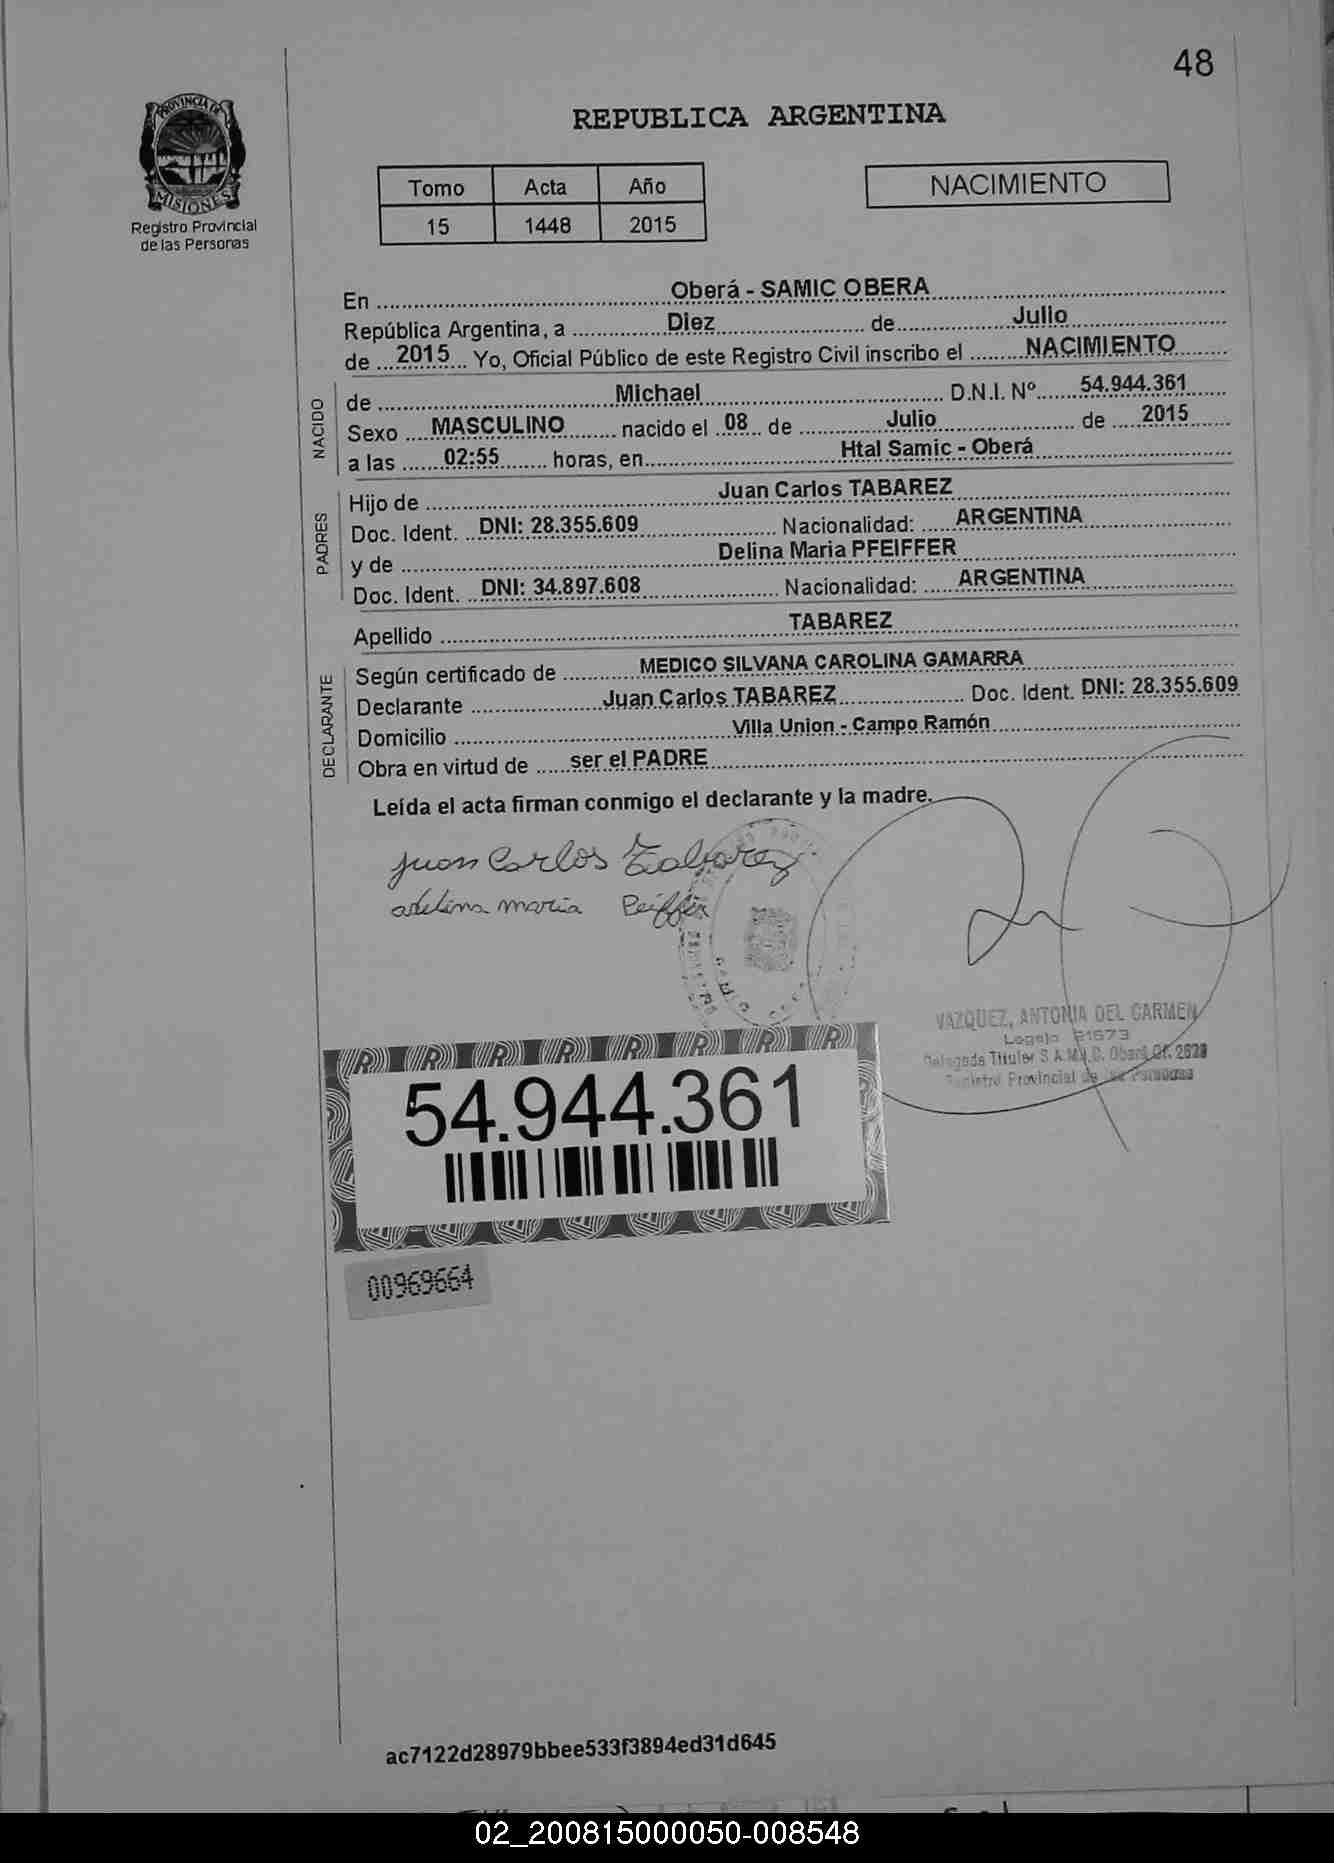 48
PROVINCIA DE
MISIONES
Registro Provincial
de las Personas
REPUBLICA ARGENTINA
Tomo Acta Año
15 1448 2015
NACIMIENTO
En Oberá - SAMIC OBERA
República Argentina, a Diez de Julio
de 2015 Yo, Oficial Público de este Registro Civil inscribo el NACIMIENTO
NACIDO
de Michael D.N.I. Nº 54.944.361
Sexo MASCULINO nacido el 08 de Julio de 2015
a las 02:55 horas, en Htal Samic - Oberá
PADRES
Hijo de Juan Carlos TABAREZ
Doc. Ident. DNI: 28.355.609 Nacionalidad: ARGENTINA
y de Delina Maria PFEIFFER
Doc. Ident. DNI: 34.897.608 Nacionalidad: ARGENTINA
Apellido TABAREZ
DECLARANTE
Según certificado de MEDICO SILVANA CAROLINA GAMARRA
Declarante Juan Carlos TABAREZ Doc. Ident. DNI: 28.355.609
Domicilio Villa Union - Campo Ramón
Obra en virtud de ser el PADRE
Leída el acta firman conmigo el declarante y la madre.
Juan Carlos Tabarez
maria
VAZQUEZ, ANTONIA DEL CARMEN
Legajo
Titular S.A.M.I.C. Oberá Of. 2628
Registro Provincial de las Personas
54.944.361
00969664
ac7122d28979bbee533f3894ed31d645
02_200815000050-008548